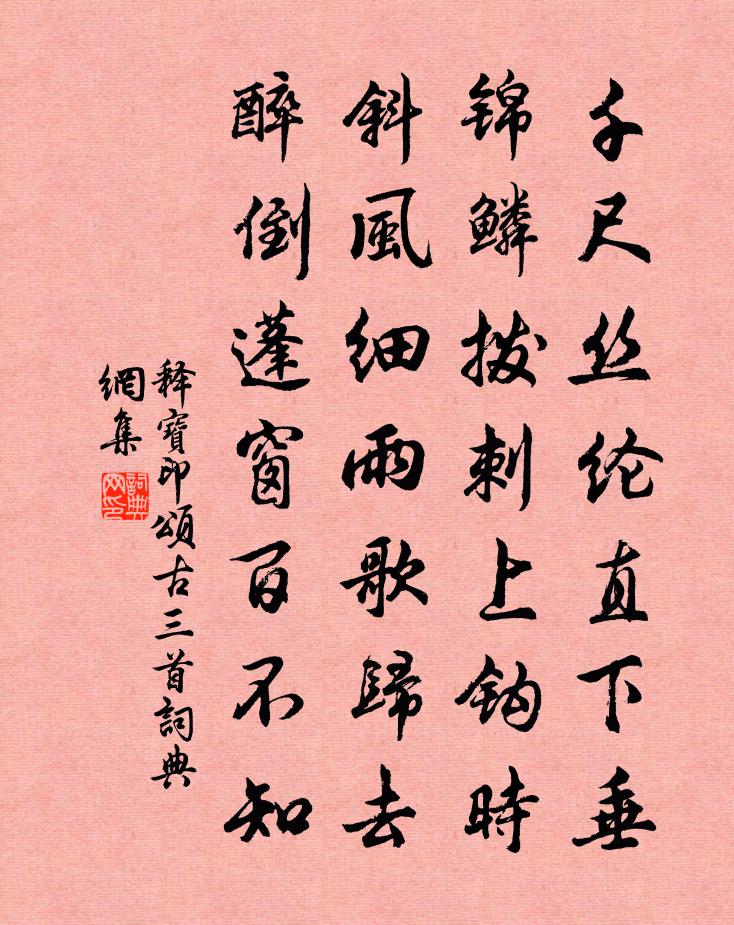 千尺丝纶直下垂
锦鳞拨刺上钩時
斜風细雨歌歸去
醉倒蓬窗百不知
释寶印頌古三首詞典
網集
詞典
网印